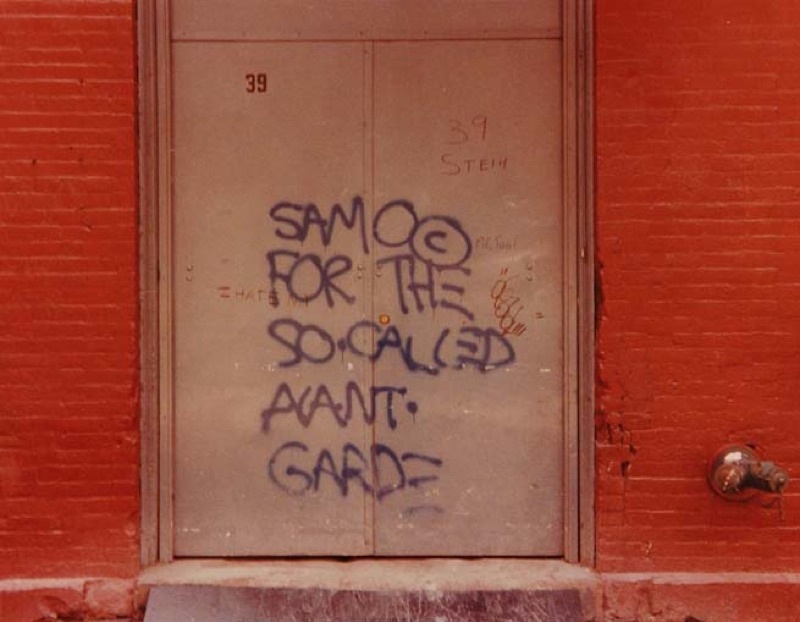 39
39
STEIN
SAMO©
FOR THE
SO-CALLED
AVANT-
GARDE
I HATE